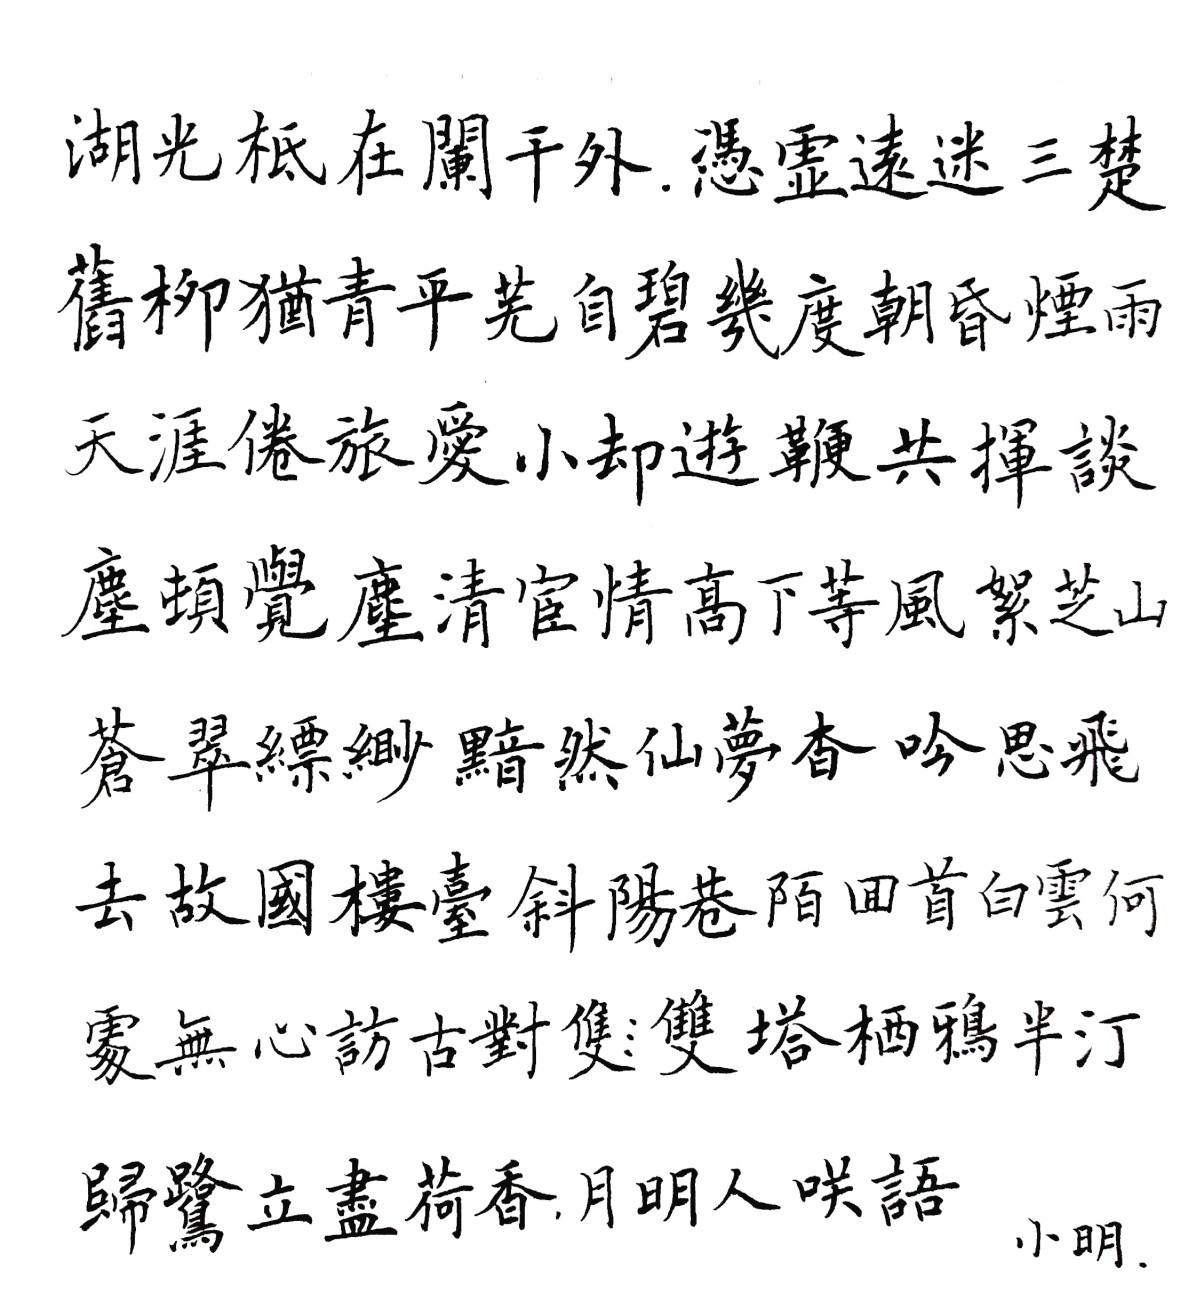 湖光祗在闌干外.憑虛遠迷三楚
舊柳猶青平芜自碧幾度朝昏煙雨
天涯倦旅愛小却遊鞭共揮談
塵頓覺塵清宦情高下等風絮芝山
蒼翠縹緲黯然仙夢杳吟思飛
去故國樓臺斜陽巷陌回首白雲何
處無心訪古對隻:雙塔栖鴉半汀
歸鷺立盡荷香,月明人咲語
小明.